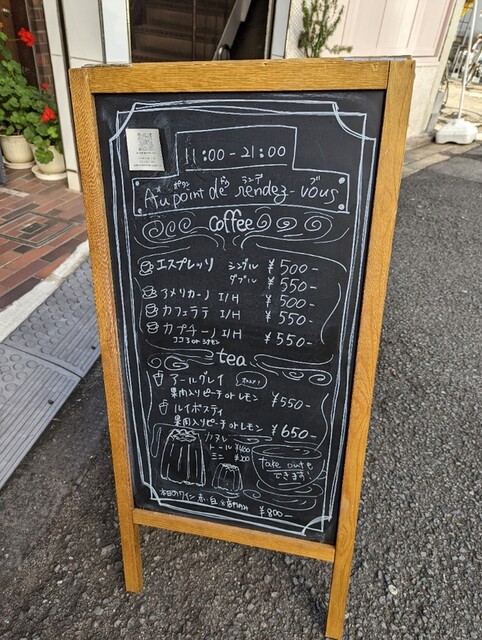 11:00-21:00
Au point de rendez-vous
coffee
エスプレッソ シングル ¥500-
ダブル ¥550-
アメリカーノ I/H ¥500-
カフェラテ I/H ¥550-
カプチーノ I/H ¥550-
ココア or シナモン
tea
アールグレイ
果肉入りピーチ or レモン ¥550-
ルイボスティ
果肉入りピーチ or レモン ¥650-
カヌレ
トール ¥600
ミニ ¥200
take out
できます!
本日のワイン 赤/白 ¥800-